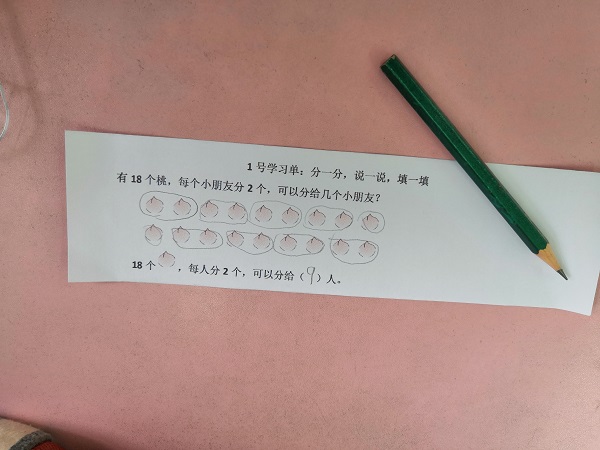 1 号学习单：分一分，说一说，填一填
有 18 个桃，每个小朋友分 2 个，可以分给几个小朋友？
18 个 ，每人分 2 个，可以分给（9）人。